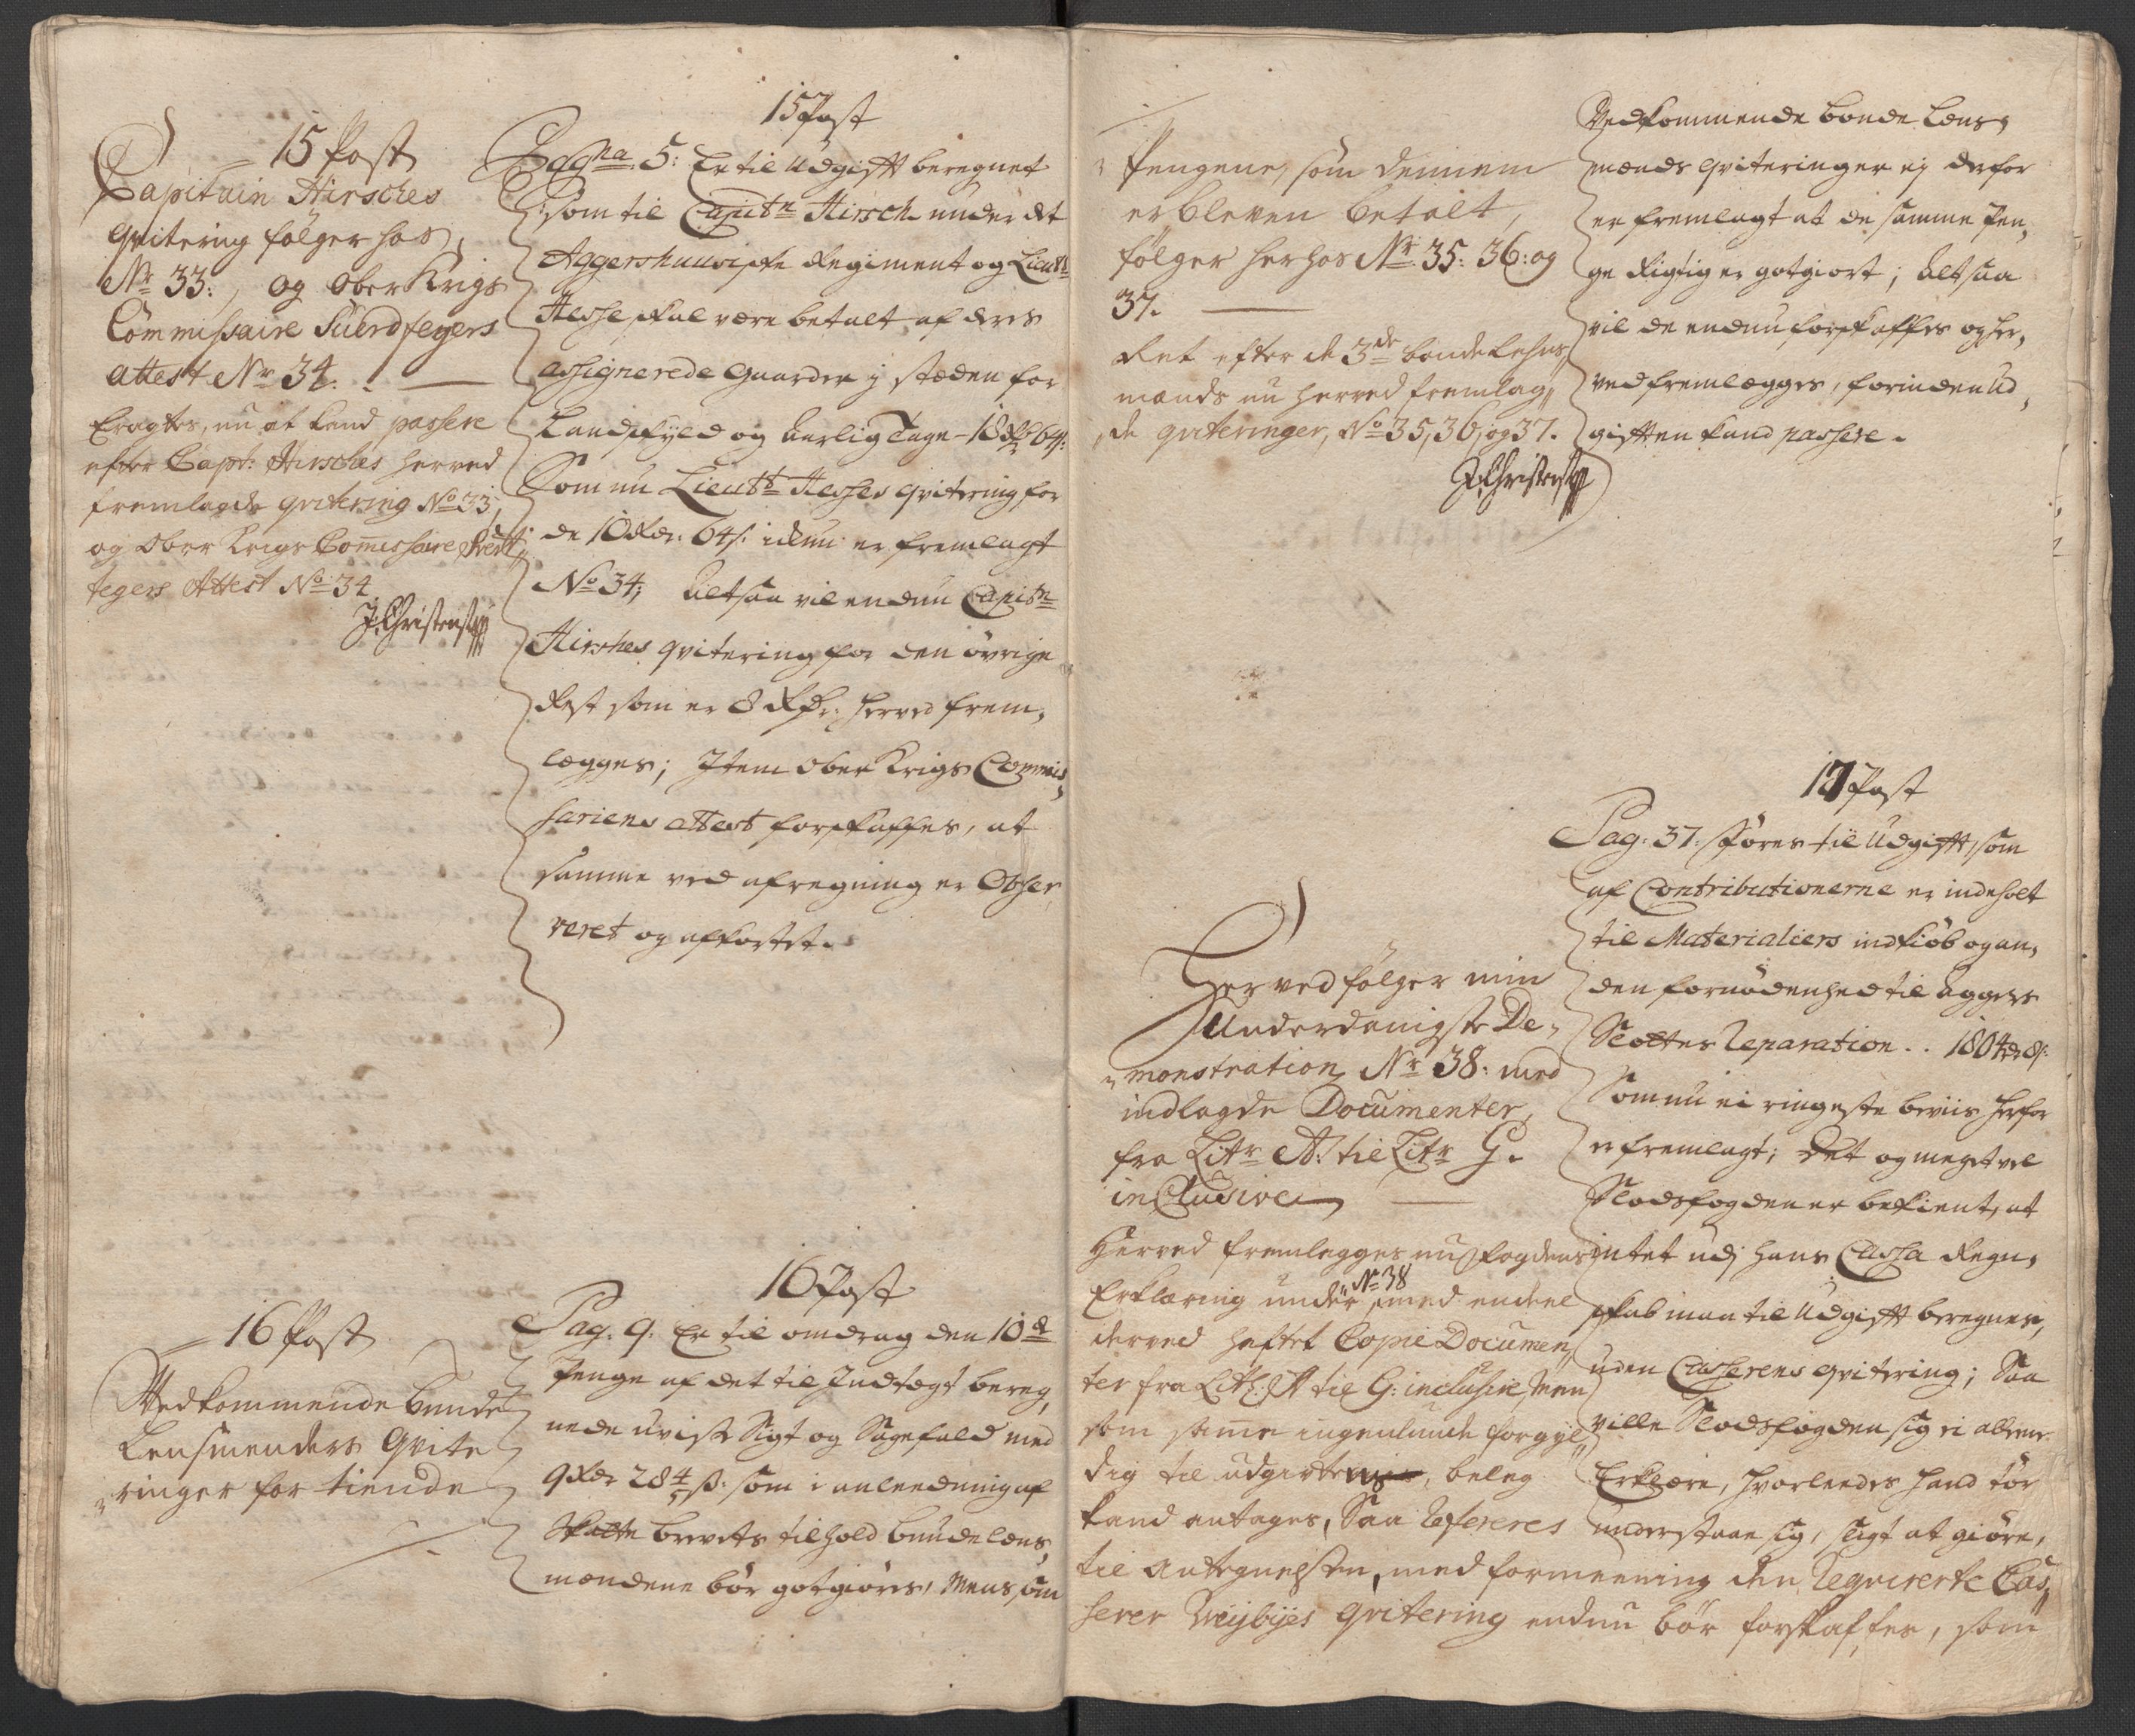 15 Post
Capitain Hirsches
qvitering følger hos,
Nr 33:, og Ober Krigs
Commissaire Suerdfegers
attest Nr 34.
Eragtes, nu at kand passere
efter Capt: Hirsches herved
fremlagde qvitering No 33,
og Ober Krigs Commissaire Sverd,,
fegers Attest No 34
J. Christensen
16 Post
Vedkommende bunde
Lensmenders Qvite
ringer for tiende
15 Post
Pagna 5: Er til Udgifft beregnet
som til Capitn Hirsch under det
Aggershuusiske Regiment og Lieutt
Hesse skal være betalt af deres
assignerede Gaarder i stæden for
Landskyld og Aarlig Tage - 18 Rd 64 s:
Som nu Lieutt Hesses qvitering for
de 10 Rdr: 64 s: ickun er fremlagt
No 34; Altsaa vil endnu Capitn
Hirshes qvitering for den øvrige
Rest som er 8 Rdr: herved frem,
lægges; Item Ober Krigs Commis,
sariens attest forskaffes, at
samme ved afregning er Obser,
veret og afkortet.
16 Post
Pag: 9: Er til omdrag den 10de
Penge af det til Indtægt bereg,
nede uvisse Sigt og Sagefald med
9 Rdr 28 4/5 s: som i anleedning af
Skatte brevets tilhold bunde læns,
mændene bør gotgiøres, Mens som
Pengene, som dennem
er bleven betalt,
følger herhos Nr: 35: 36: og
37.
Ret efter de 3de bonde Lehns,,
mænds nu herved fremlag,,
de qviteringer, No 35, 36, og 37.
J. Christensen
Her ved følger min
Underdanigste De,
monstration Nr 38: med
indlagde Documenter,
fra Litr A: til Litr G.
inClusive
Herved fremlegges nu fogdens
Erklæring under No 38, med endeel
derved heftet Copie Documen,,
ter fra Litr: A til G: inclusive, Men
som samme ingenlunde for gyl,,
dig til udgivternes, beleg
kand antages, Saa Refereres
til Antegnelsten, med formeening den Reqvirerte Cas,,
serer Weybyes qvitering endnu bør forskaffes, som
Vedkommende bonde Læns,
mænds qviteringer ej derfor
er fremlagt at de samme Pen,
ge Rigtig er gotgiort; Altsaa
vil de endnu forskaffes og her,
ved fremlægges, forinden Ud,
gifften kand passere.
17 Post
Pag: 37: Føres til Udgifft, som
af Contributionerne er indeholt
til Materialiers indkiøb og an,
den fornødenhed til Aggers
Slottes Reparation .. 1804 Rd 8 s:
Som nu ei ringeste beviis herfor
er fremlagt; Det og meget vel
Slodsfogden er bekient, at
intet udj hans Cassa Regn,
skab maa til Udgifft beregnes,
uden Casserens qvitering; Saa
ville Slodsfogden sig ei allene
Erklære, hvorledes hand tør
understaae sig, sligt at giøre,